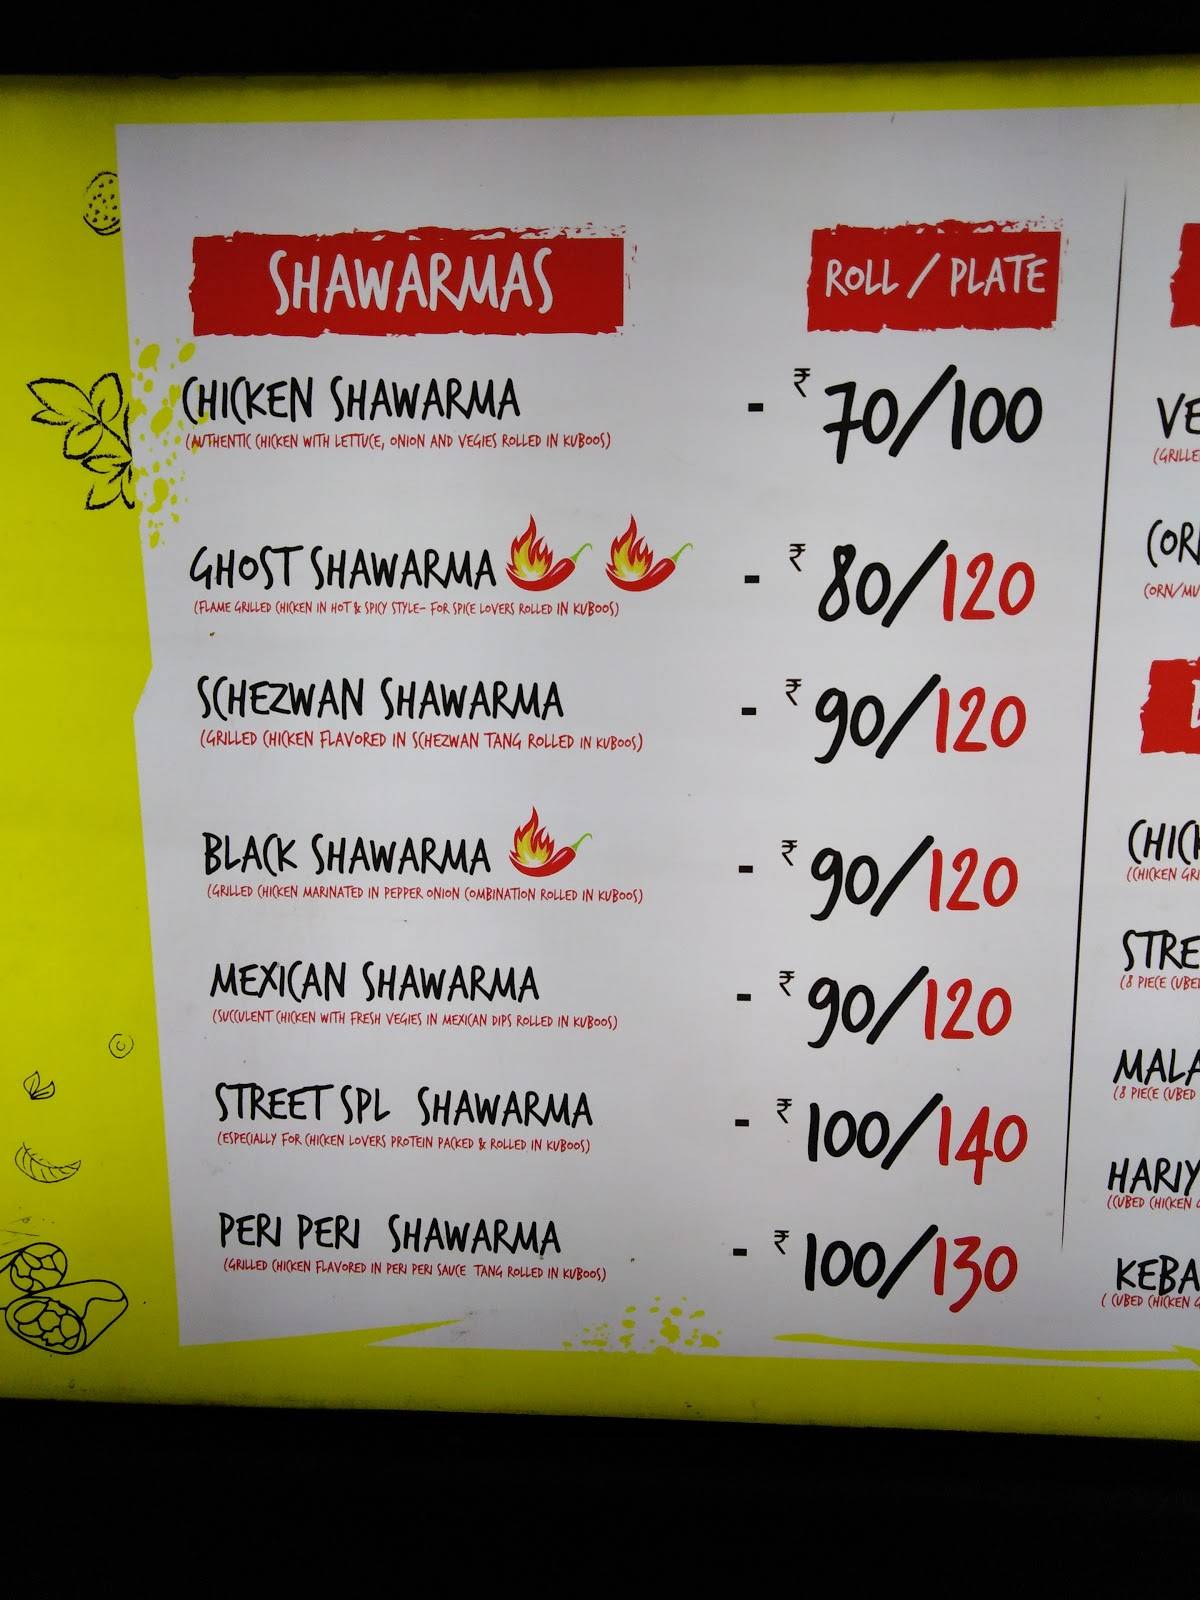 SHAWARMAS
ROLL / PLATE
CHICKEN SHAWARMA - ₹ 70/100
(AUTHENTIC CHICKEN WITH LETTUCE, ONION AND VEGIES ROLLED IN KUBOOS)
GHOST SHAWARMA - ₹ 80/120
(FLAME GRILLED CHICKEN IN HOT & SPICY STYLE- FOR SPICE LOVERS ROLLED IN KUBOOS)
SCHEZWAN SHAWARMA - ₹ 90/120
(GRILLED CHICKEN FLAVORED IN SCHEZWAN TANG ROLLED IN KUBOOS)
BLACK SHAWARMA - ₹ 90/120
(GRILLED CHICKEN MARINATED IN PEPPER ONION COMBINATION ROLLED IN KUBOOS)
MEXICAN SHAWARMA - ₹ 90/120
(SUCCULENT CHICKEN WITH FRESH VEGIES IN MEXICAN DIPS ROLLED IN KUBOOS)
STREET SPL SHAWARMA - ₹ 100/140
(ESPECIALLY FOR CHICKEN LOVERS PROTEIN PACKED & ROLLED IN KUBOOS)
PERI PERI SHAWARMA - ₹ 100/130
(GRILLED CHICKEN FLAVORED IN PERI PERI SAUCE TANG ROLLED IN KUBOOS)
VE
(GRILLE
COR
CORN/MU
CHIC
(CHICKEN GRI
STRE
(8 PIECE CUBE
MALA
(8 PIECE CUBED
HARIY
(CUBED CHICKEN
KEBA
( CUBED CHICKEN